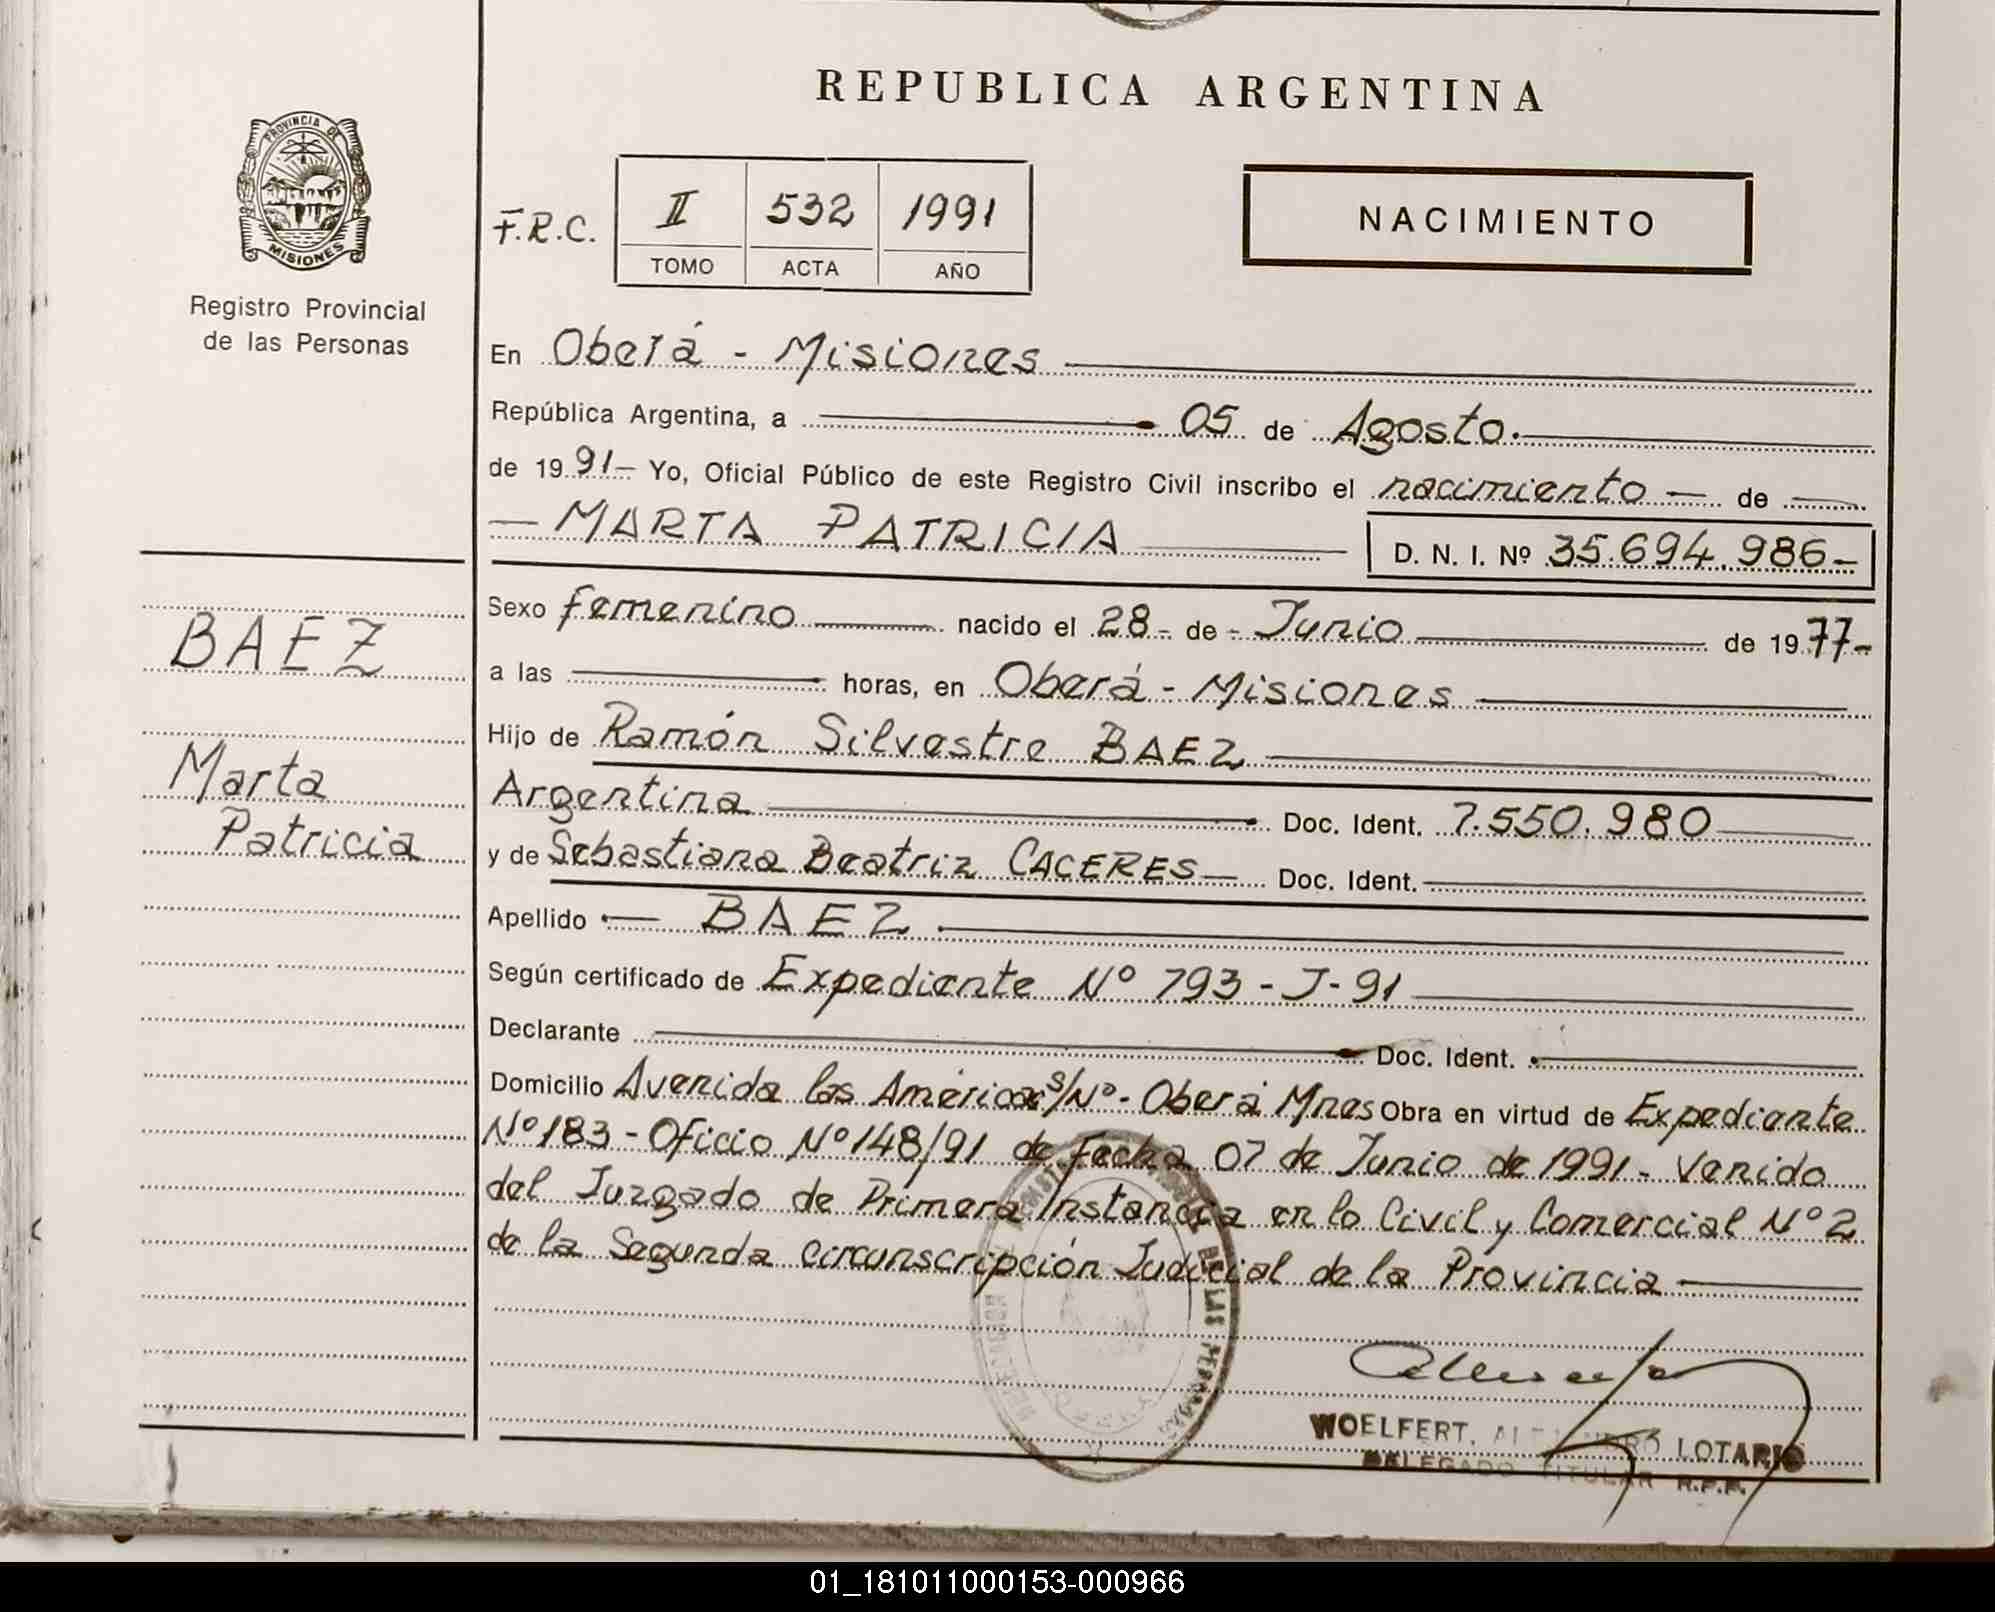 REPUBLICA ARGENTINA
PROVINCIA DE
MISIONES
Registro Provincial
de las Personas
F.R.C. II 532 1991
TOMO ACTA AÑO
NACIMIENTO
En Oberá - Misiones
República Argentina, a 05 de Agosto.
de 1991- Yo, Oficial Público de este Registro Civil inscribo el nacimiento - de
- MARTA PATRICIA D. N. I. Nº 35.694.986-
BAEZ
Marta
Patricia
Sexo femenino nacido el 28- de - Junio de 1977-
a las horas, en Oberá - Misiones
Hijo de Ramón Silvestre BAEZ
Argentina Doc. Ident. 7.550.980
y de Sebastiana Beatriz CACERES- Doc. Ident.
Apellido - BAEZ
Según certificado de Expediente Nº 793 - J - 91
Declarante Doc. Ident.
Domicilio Avenida las Américas s/Nº- Oberá Mnes Obra en virtud de Expediente
Nº 183 - Oficio Nº 148/91 de Fecha 07 de Junio de 1991- Venido
del Juzgado de Primera Instancia en lo Civil y Comercial Nº 2
de la Segunda circunscripción Judicial de la Provincia
DE LAS PERSONAS
WOELFERT, ALEJANDRO LOTARIO
DELEGADO TITULAR R.P.P.
01_181011000153-000966